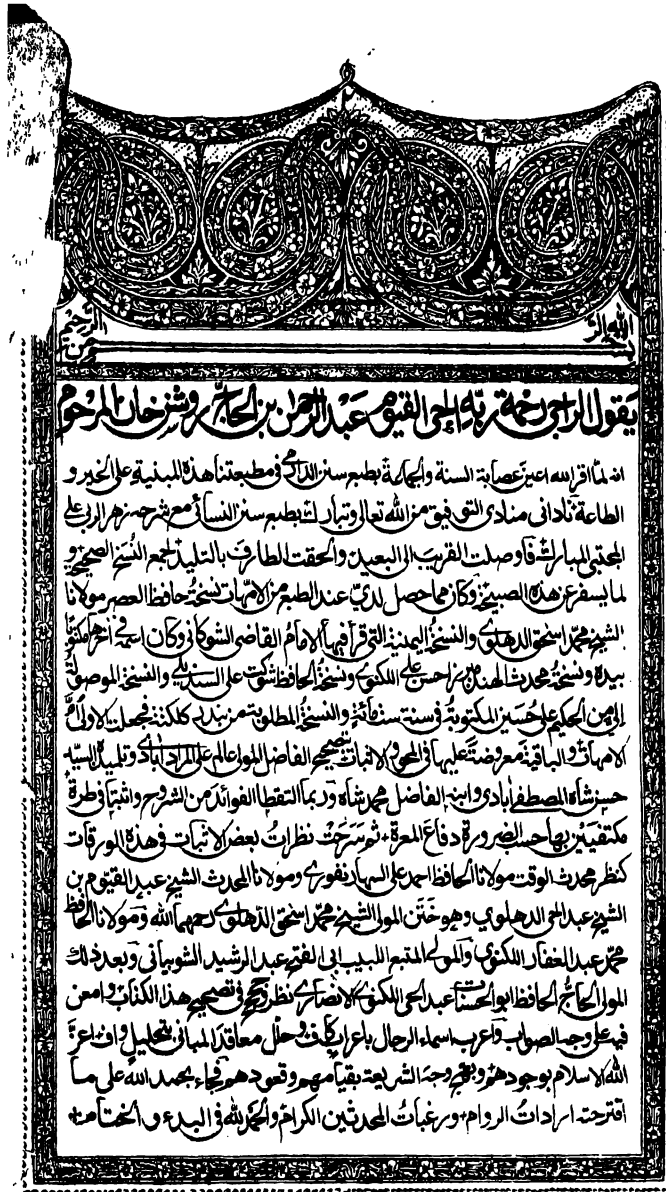 يقول الراجي رحمة ربّه الحي القيوم عبد الرحمن بن الحاج روشن خان المرحوم
انه لما اقر الله اعين عصابة السنة والجماعة بطبع سنن الدارمي في مطبعتنا هذه المبنية على الخير و
الطاعة ناداني منادي التوفيق من الله تعالى وتبارك بطبع سنن النسائي مع شرحه زهر الربى على
المجتبى المبارك فاوصلت القريب الى البعيد والحقت الطارف بالتليد لجمع النسخ الصحيحة و
لما يسفر عن هذه الصبيحة وكان مما حصل لديّ عند الطبع من الامهات نسخة حافظ العصر مولانا
الشيخ محمد اسحق الدهلوي والنسخة اليمنية التي قرأ فيها الامام القاضي الشوكاني وكان اسمه في اخرها مكتوبا
بيده ونسخة محدث الهند ميرزا حسن علي اللكنوي ونسخة الحافظ شوكت علي السنديلي والنسخة الموصولة
الي من الحكيم علي حسين المكتوبة في سنة ستمائة والنسخة المطلوبة من بندر كلكتة فجعلت الاولى امّ
الامهات والباقية معروضة عليها في المحو والاثبات بتصحيح الفاضل المولى عالم علي المرادابادي وتلميذه السيد
حسن شاه المصطفى ابادي وابنه الفاضل محمد شاه وربما التقطا الفوائد من الشروح واثبتها في طرة
مكتفيين بها حسب الضرورة دفاع المعرة ثم سرحت نظرات بعض الاثبات في هذه الورقات
كنظر محدث الوقت مولانا الحافظ احمد علي السهارنفوري ومولانا المحدث الشيخ عبد القيوم بن
الشيخ عبد الحي الدهلوي وهو ختن المولى الشيخ محمد اسحق الدهلوي رحمهما الله ومولانا الحافظ
محمد عبد الغفار اللكنوي والمولى المتبع اللبيب ابي الفتح عبد الرشيد الشوپياني وبعد ذلك
المولى الحاج الحافظ ابو الحسنات عبد الحي اللكنوي الانصاري نظر في تصحيح هذا الكتاب وامعن
فيها على وجه الصواب واعرب اسماء الرجال باعراب كاف وحل معاقد المباني بتحليل واف اعزّ
الله الاسلام بوجودهم وبهج وجه الشريعة بقيامهم وقعودهم فجاء بحمد الله على ما
اقترحته ارادات الروام ورغبات المحدثين الكرام والحمد لله في البدء والختام